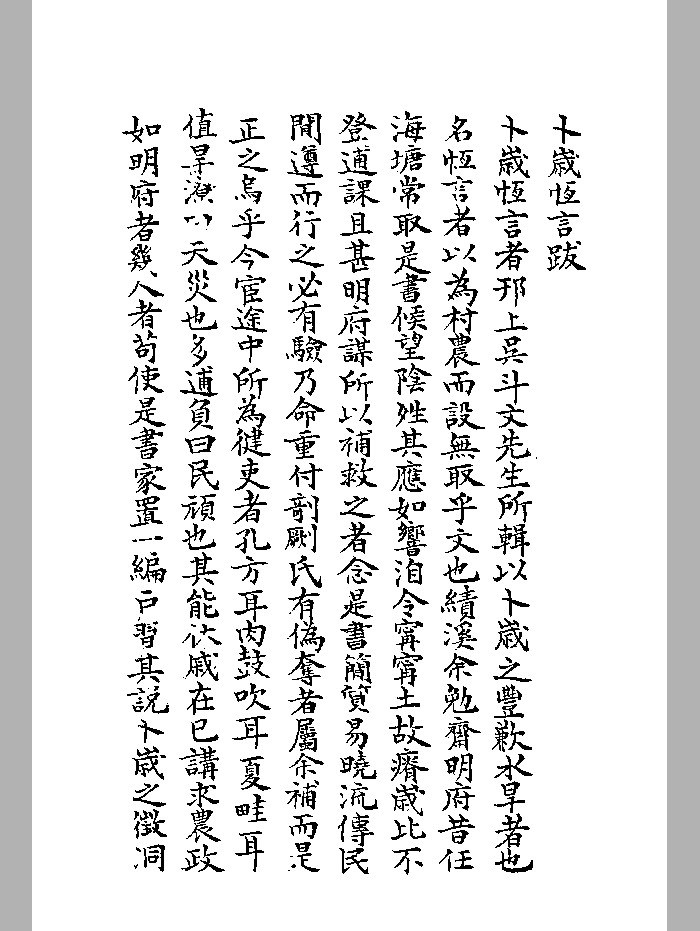 卜歲恆言跋
卜歲恆言者邗上吳斗文先生所輯以卜歲之豐歉水旱者也
名恆言者以為村農而設無取乎文也績溪余勉齋明府昔任
海塘常取是書候望陰甠其應如響洎令甯甯土故瘠歲比不
登逋課且甚明府謀所以補救之者念是書簡質易曉流傳民
間遵而行之必有驗乃命重付剞劂氏有偽奪者屬余補而是
正之烏乎今宦途中所為健吏者孔方耳肉鼓吹耳夏畦耳
值旱潦 天災也多逋負曰民頑也其能 戚在巳講求農政
如明府者幾人者苟使是書家置一編戶習其說卜歲之徵洞